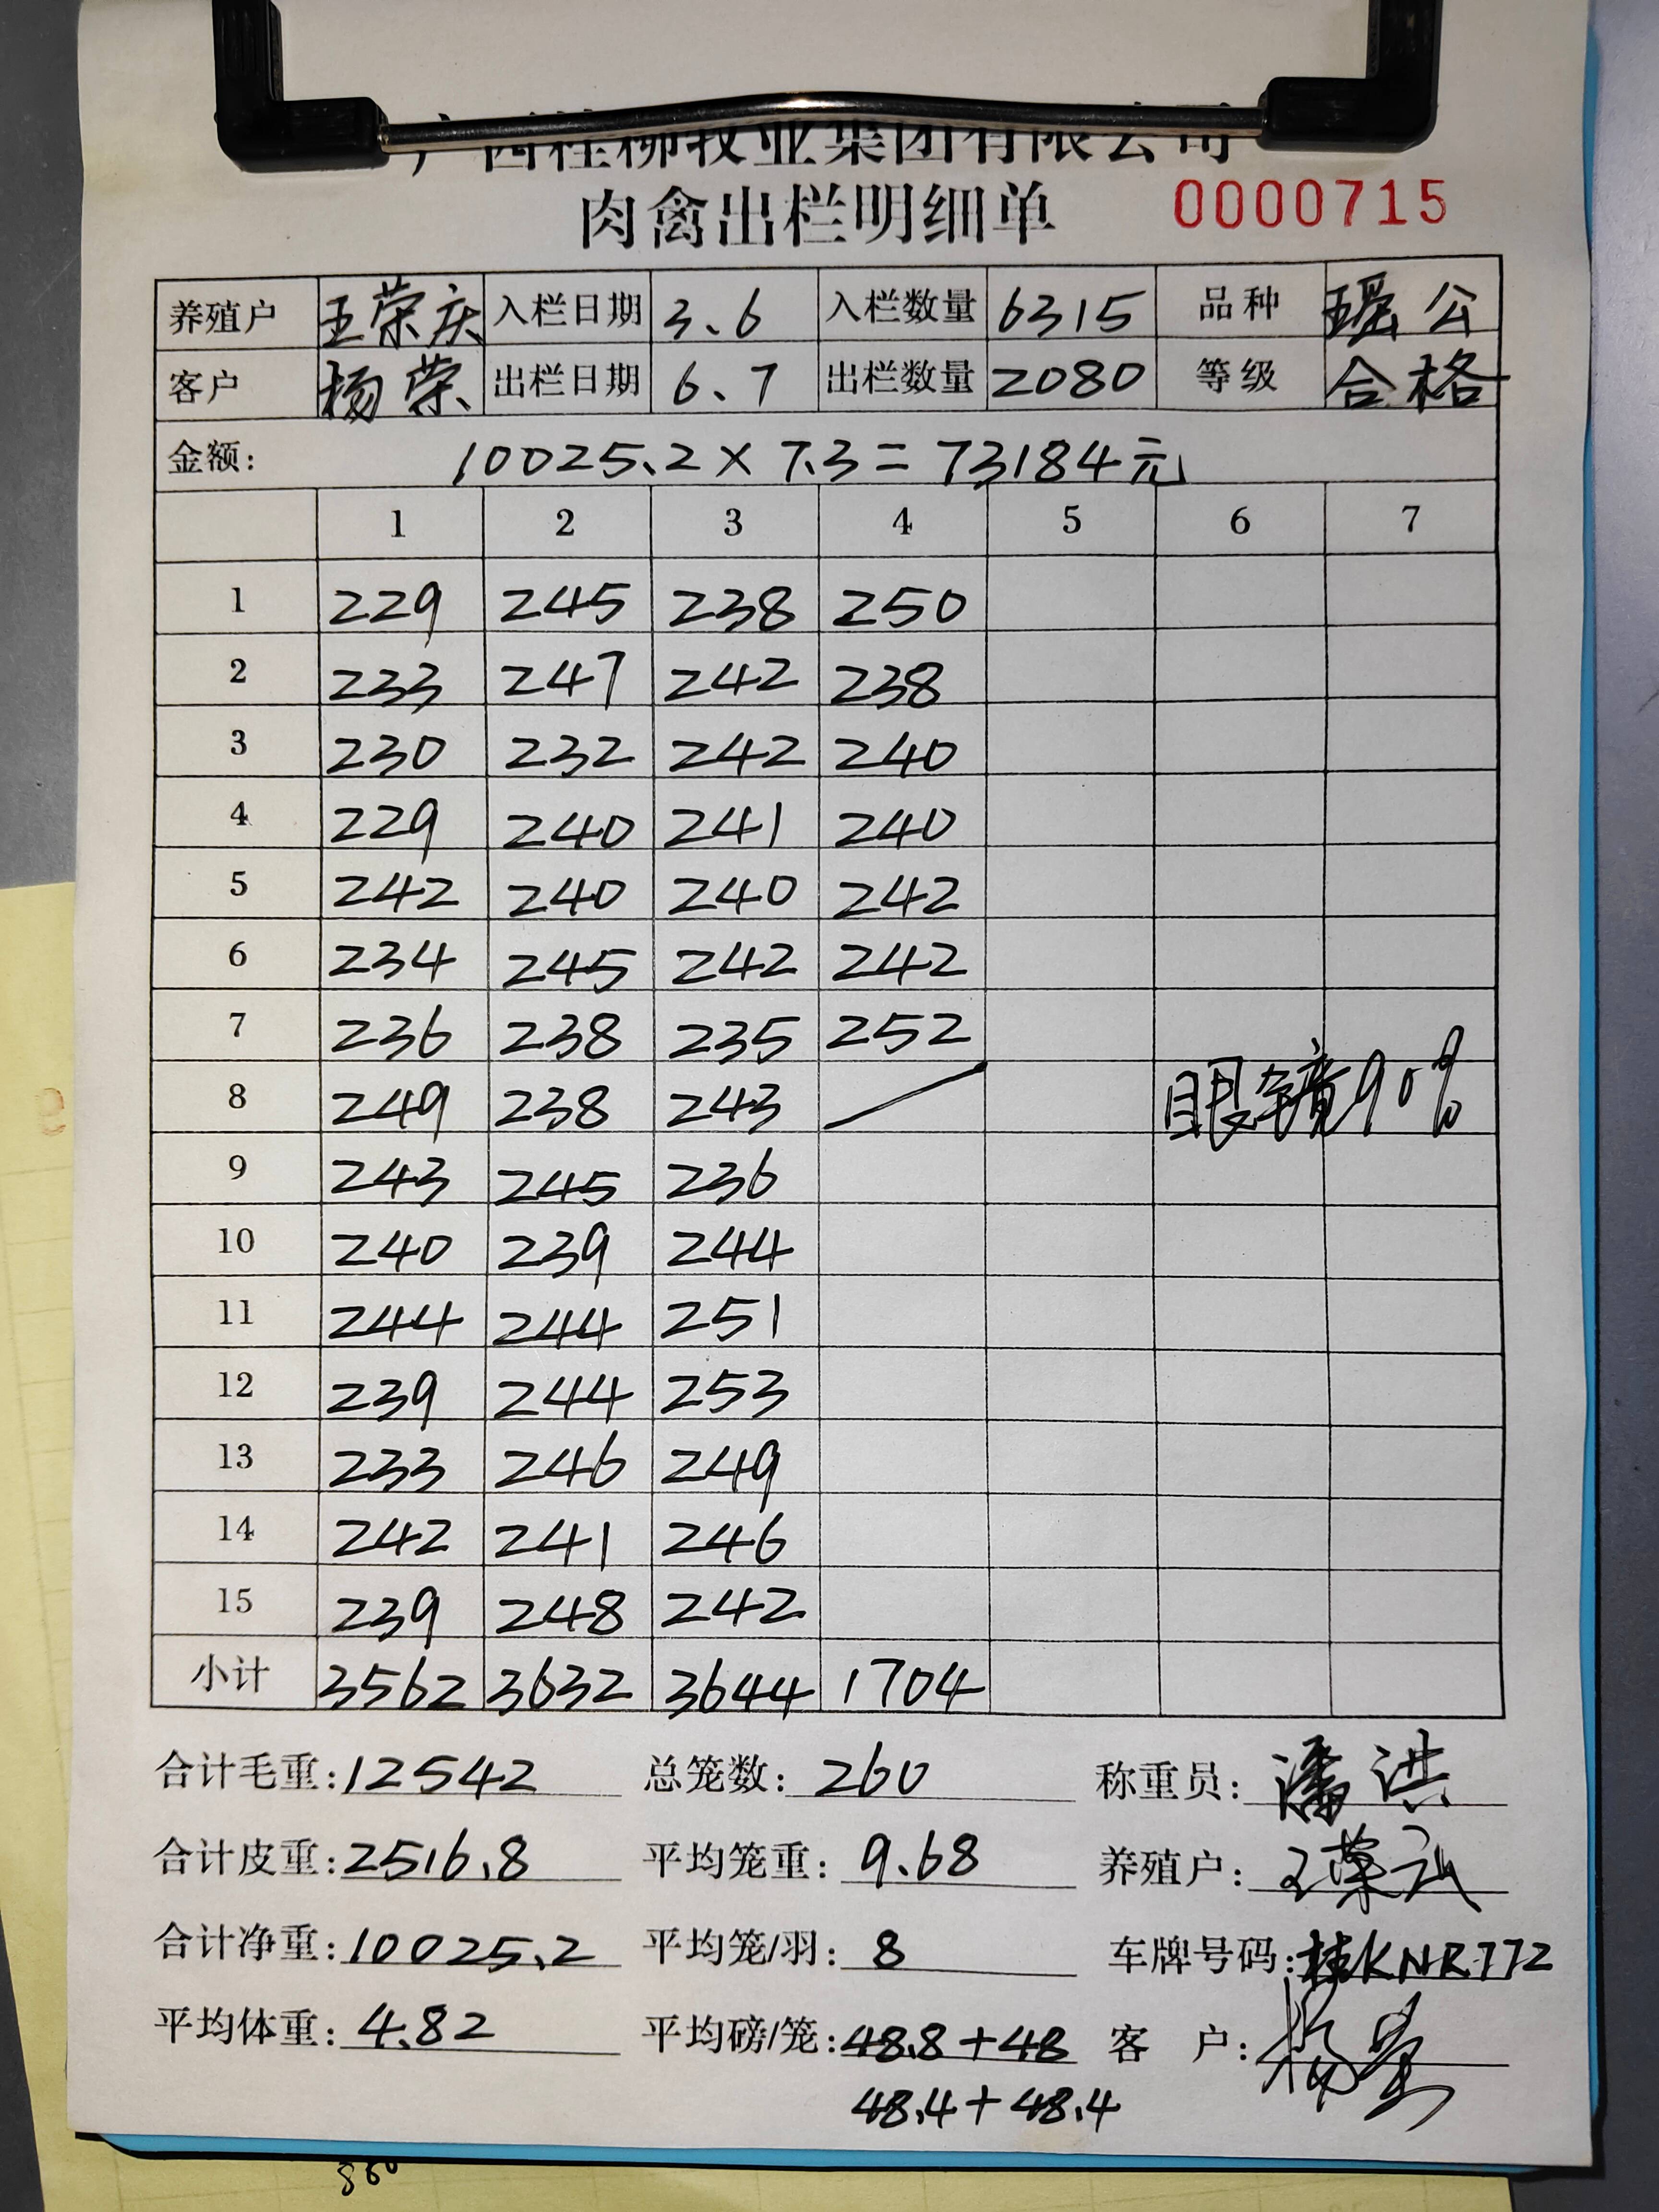 广西桂柳牧业集团有限公司
肉禽出栏明细单 0000715
养殖户 王荣庆 入栏日期 3.6 入栏数量 6315 品种 瑶公
客户 杨荣 出栏日期 6.7 出栏数量 2080 等级 合格
金额: 10025.2×7.3=73184元
1 2 3 4 5 6 7
1 229 245 238 250
2 233 247 242 238
3 230 232 242 240
4 229 240 241 240
5 242 240 240 242
6 234 245 242 242
7 236 238 235 252
8 249 238 243 眼镜90%
9 243 245 236
10 240 239 244
11 244 244 251
12 239 244 253
13 233 246 249
14 242 241 246
15 239 248 242
小计 3562 3632 3644 1704
合计毛重:12542 总笼数:260 称重员:潘洪
合计皮重:2516.8 平均笼重:9.68 养殖户:
合计净重:10025.2 平均笼/羽:8 车牌号码:桂KNR772
平均体重:4.82 平均磅/笼:48.8+48 客 户:
48.4+48.4